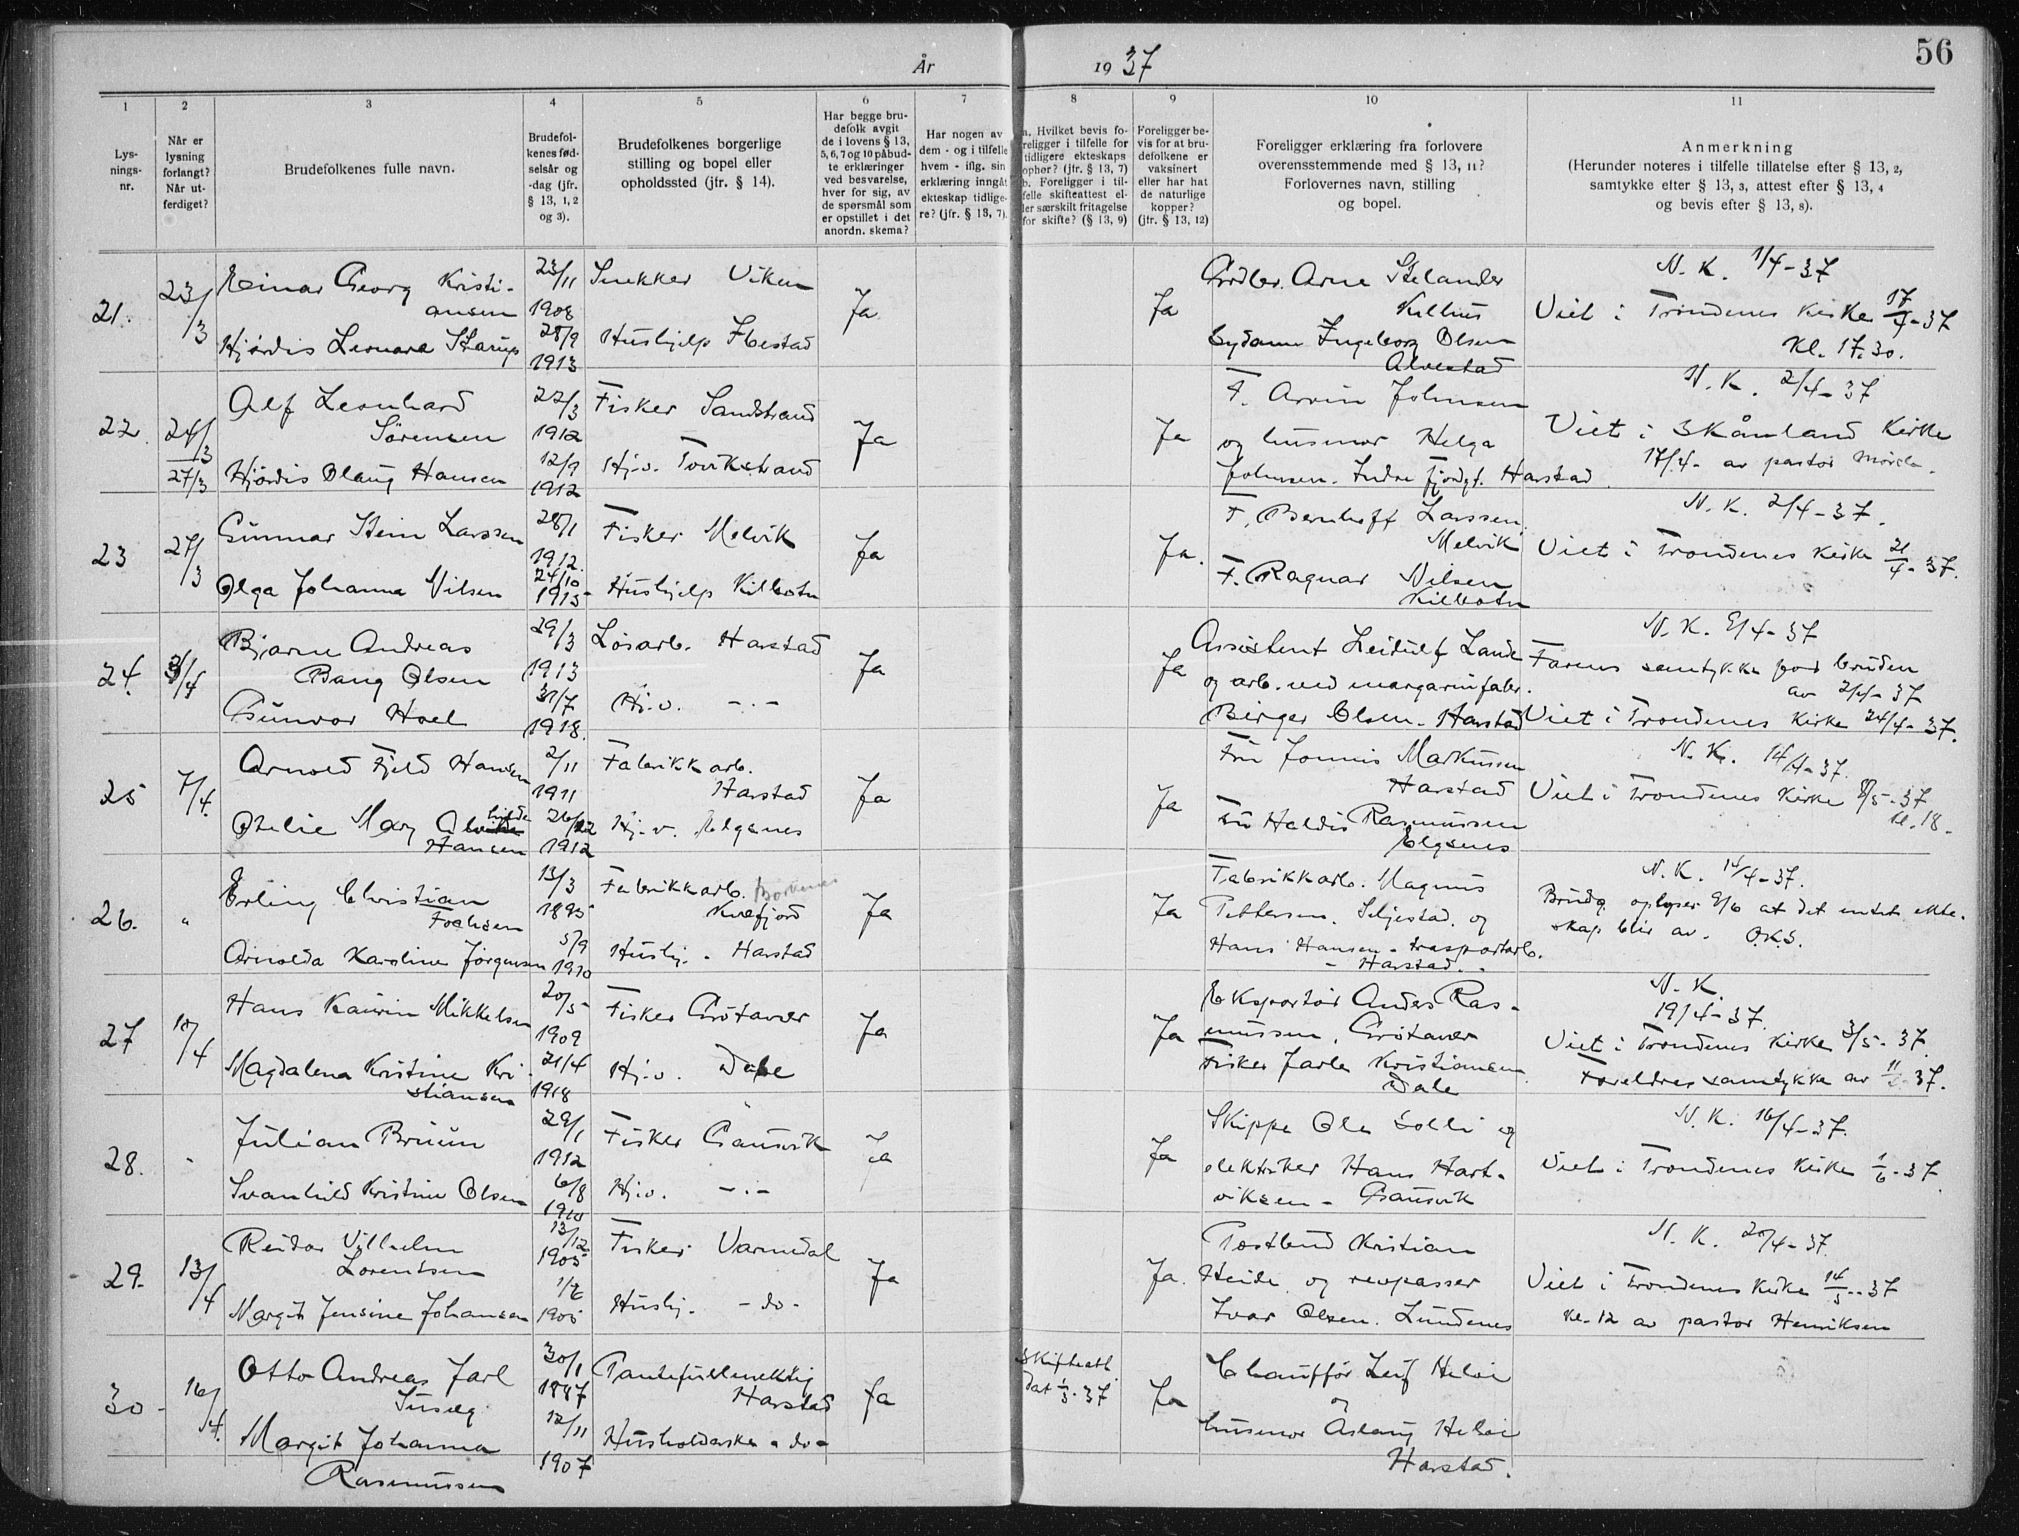 År 1937
56
1 2 3 4 5 6 7 8 9 10 11
Lys-
nings-
nr.
Når er
lysning
forlangt?
Når ut-
ferdiget?
Brudefolkenes fulle navn.
Brudefol-
kenes fød-
selsår og
-dag (jfr.
§ 13, 1, 2
og 3).
Brudefolkenes borgerlige
stilling og bopel eller
opholdssted (jfr. § 14).
Har begge bru-
defolk avgit
de i lovens § 13,
5, 6, 7 og 10 påbud-
te erklæringer
ved besvarelse,
hver for sig, av
de spørsmål som
er opstillet i det
anordn. skema?
Har nogen av
dem - og i tilfelle
hvem - iflg. sin
erklæring inngått
ekteskap tidlige-
re? (jfr. § 13, 7).
a. Hvilket bevis fo-
religger i tilfelle for
tidligere ekteskaps
ophør? (jfr. § 13, 7)
b. Foreligger i til-
felle skifteattest el-
ler særskilt fritagelse
for skifte? (§ 13, 9)
Foreligger be-
vis for at bru-
defolkene er
vaksinert
eller har hat
de naturlige
kopper?
(jfr. § 13, 12)
Foreligger erklæring fra forlovere
overensstemmende med § 13, 11?
Forlovernes navn, stilling
og bopel.
Anmerkning
(Herunder noteres i tilfelle tillatelse efter § 13, 2,
samtykke efter § 13, 3, attest efter § 13, 4
og bevis efter § 13, 8).
21. 23/3
Einar Georg Kristi-
ansen
23/11
1908
Snekker Viken
Hjørdis Leonare
28/9
1913
Hushjelp
Ja
Ja
Arne
Ingeborg Olsen
N. K. 1/4-37
Viet i Trondenes Kirke 17/4-37
Kl. 17.30.
22. 24/3
27/3
Alf Leonhard
Sørensen
22/3
1912
Fisker Sandstrand
Hjørdis Olaug Hansen
12/9
1912
Hj.v.
Ja
Ja
F. Arvin Johnsen
og husmor Helga
Johnsen. Harstad
N. K. 2/4-37
Viet i Skånland Kirke
17/4- av pastor
23 27/3
Gunnar Stein Larssen
28/1
1912.
Fisker Melvik
Olga Johanna Nilsen
24/10
1915
Hushjelp Kilbotn
Ja
Ja.
F. Bernhoff Larssen
Melvik
F. Ragnar Nilsen
Kilbotn
N. K. 2/4-37.
Viet i Trondenes Kirke 21/4-37.
24. /4
Bjarne Andreas
Bang Olsen
29/3
1913
Løsarb. Harstad
Gunvor Hoel
31/7
1918.
Hj.v. -.-
Ja
Ja
Assistent Leidulf Lande
og arb. ved margarinfabr.
Birger Olsen. Harstad
N. K. 9/4-37
Farens samtykke for bruden
av 2/4-37
Viet i Trondenes Kirke 24/4-37.
25 7/4.
Arnold Fjeld Hansen
2/11
1911
Fabrikkarb.
Harstad
Otelie Mary
Hansen
26/12
1912
Hj.v. Elgsnes
Ja
Ja
Markussen
Harstad
Fru Haldis Rasmussen
Elgsnes
N. K. 14/4-37.
Viet i Trondenes Kirke 8/5-37
kl. 18.
26. "
Erling Christian
13/3
1895
Fabrikkarb. Borkenes
Kvæfjord
Arnolda Karoline Jørgensen
5/9
1910
Hushj. - Harstad
Ja
Ja
Fabrikkarb. Magnus
Pettersen. Seljestad. og
Hans Hansen - trasportarb.
- Harstad. -
N. K. 14/4-37.
Brudg. oplyser 9/6 at det intet ekte-
skap blir av. O.K.S.
27 10/4
Hans Kaurin Mikkelsen
20/5
1909
Fisker Grøtavær
Magdalena Kristine Kri-
stiansen
21/4
1918
Hj.v. Dale
Ja
Ja
Eksportør Anders Ras-
mussen, Grøtavær
Fisker Jarle Kristiansen
Dale
N. K.
19/4-37.
Viet i Trondenes Kirke 3/5-37.
Foreldres samtykke av 11/ -37.
28. -
Julian Bruun
29/1
1912
Fisker Gausvik
Svanhild Kristine Olsen
6/8
1910
Hj.v. -.-
Ja
Ja
Skipper Ole Solli og
elektriker Hans Hart-
viksen - Gausvik
N. K. 16/4-37.
Viet i Trondenes Kirke 1/6-37
29. 13/4
Reidar Vilhelm
Lorentsen
13/12
1905
Fisker Varmedal
Margit Jensine Johansen
1905
Hushj. - do -
Ja
Ja.
Postbud Kristian
Heide og revepasser
Ivar Olsen. Lundenes
N. K. 20/4-37.
Viet i Trondenes Kirke 14/5-37
Kl. 12 av pastor Henriksen
30 - 16/4.
Otto Andreas Jarl
30/1
1887
Pantefullmektig
Harstad
Margit Johanna
Rasmussen
12/11
1907
Husholderske - do -
Ja
Skifteatt.
dat 1/3-37
Ja
Chauffør Leif Heløe
og
husmor Aslaug Heløe
Harstad.